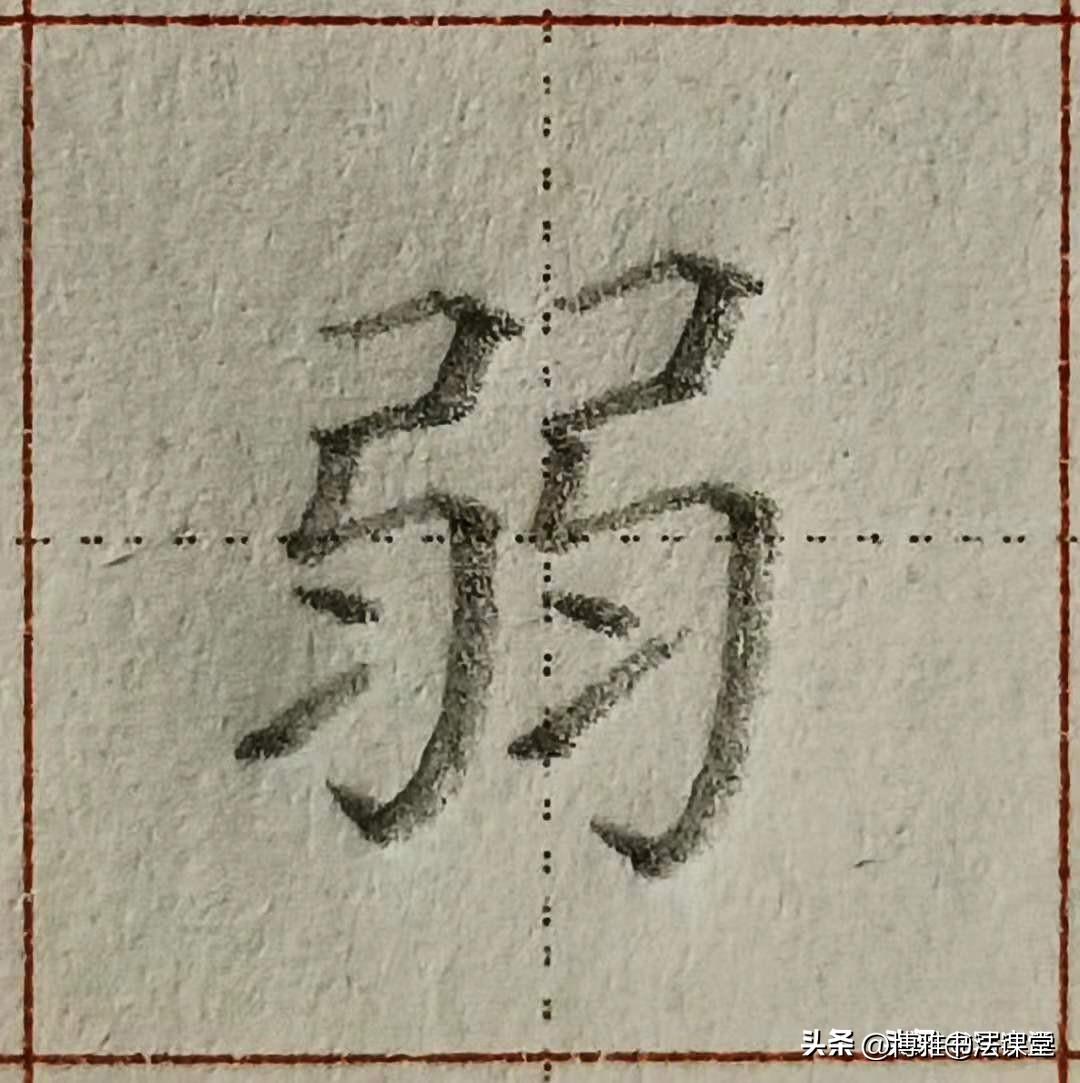 弱
头条 @博雅书法课堂